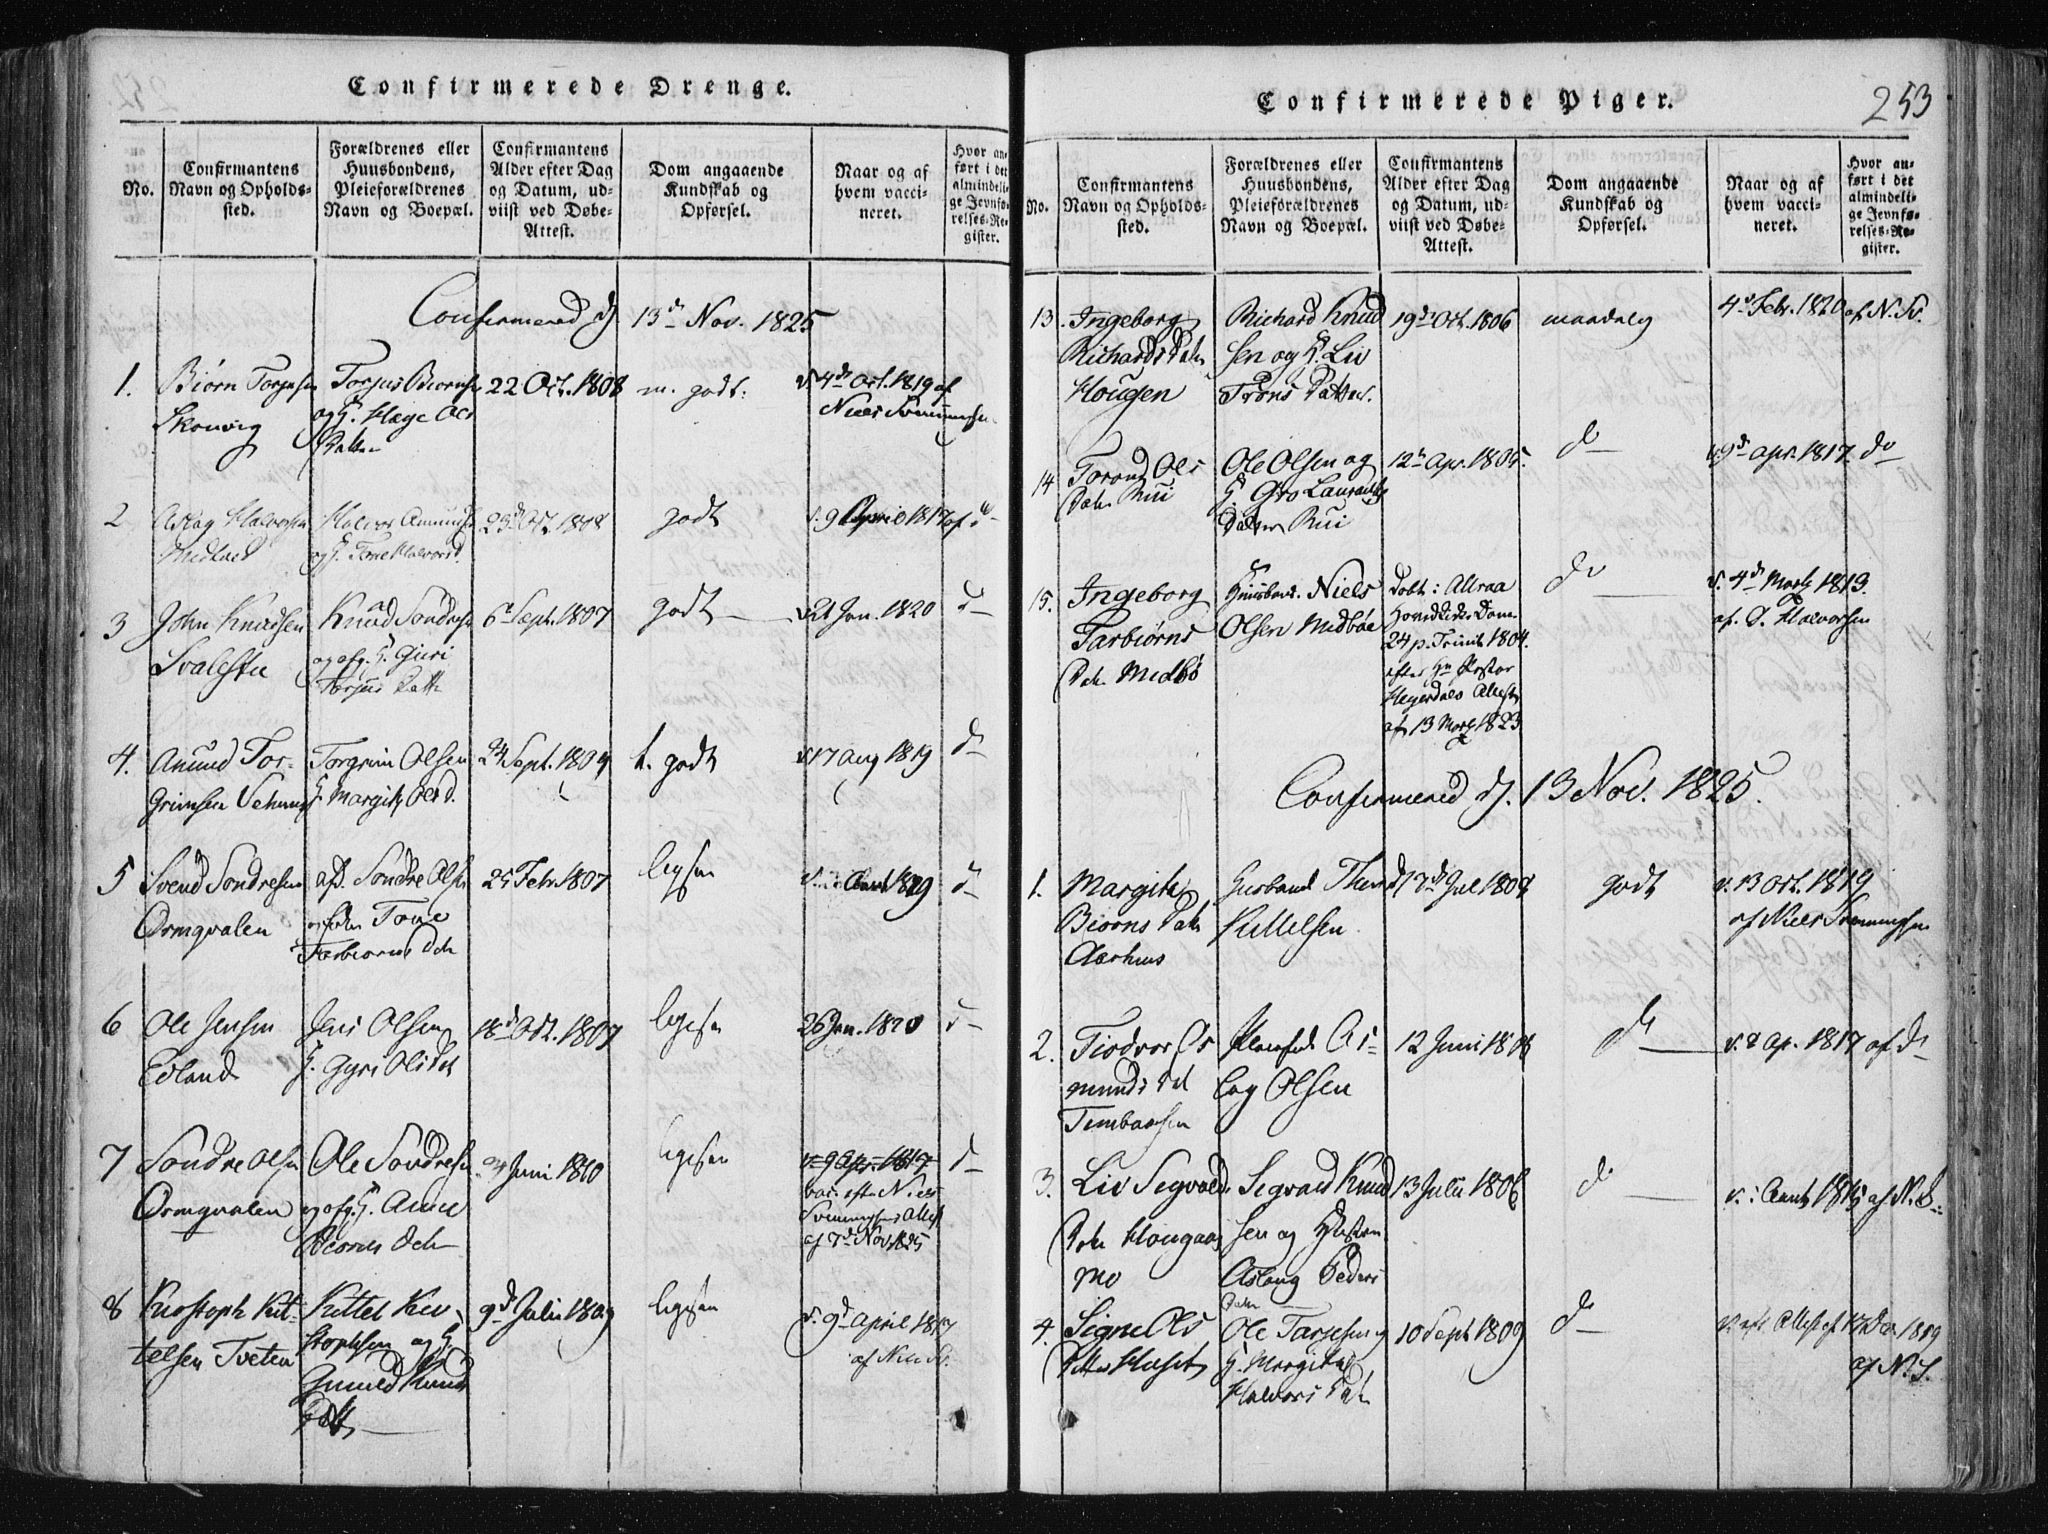 Confirmerede Drenge.
No.
Confirmantens
Navn og Opholds-
sted.
Forældrenes eller
Huusbondens,
Pleieforældrenes
Navn og Boepæl.
Confirmantens
Alder efter Dag
og Datum, ud-
viist ved Døbe-
Attest.
Dom angaaende
Kundskab og
Opførsel.
Naar og af
hvem vacci-
neret.
Hvor an-
ført i det
almindeli-
ge Jevnfø-
relses-Re-
gister.
Confirmered d. 13de Nov. 1825
1. Biørn Torjusen
Skonvig
Torjus Biørnsen
og H. Hæge Ols
Datter
22 Oct. 1808
m. godt.
v. 4de Oct. 1819 af
Niels Svenningsen
2 Aslag Halvorsen
Midbøe
Halvor Amunds
og H. Tone Halvorsd.
23d Oct 1808
godt
v. 9 April 1817 af do
3 John Knudsen
Svalestu
Knud Søndresen
og afg. H. Guri
Torjus Datter
6te Sept. 1807
godt
v. 21 Jan. 1820 do
4. Anund Tor-
grimsen
Torgrim Olsen
H. Margit Olsd.
24 Sept. 1809
t. godt
v. 17 Aug 1819 do
5 Svend Søndresen
Ormqvalen
afd. Søndre Olsen
Tone
Tarbiørns Dtr
25 Febr. 1807
ligesaa
1819 do
6 Ole Jensen
Edland
Jens Olsen
H. Gyri Olsdtr
18de Oct. 1807
ligesaa
26 Jan. 1820 do
7 Søndre Olsen
Ormqvalen
Ole Søndresen
og afg. H. Anne
Biørns Dtr
24 Juni 1810
ligesaa
v. 9 Apr. 1817
vac. efter Niels
Svenningsens Attest
af 7de Nov 1825
do
8 Kristoph Kit-
telsen Tveten
Kittel Kri-
stophsen og H.
Gunild Knuds
Datt
9de Julii 1809
ligesaa
v. 9de April 1817
af Niels Sv.
Confirmerede Piger.
253
No.
Confirmantens
Navn og Opholds-
sted.
Forældrenes eller
Huusbondens,
Pleieforældrenes
Navn og Boepæl.
Confirmantens
Alder efter Dag
og Datum, ud-
viist ved Døbe-
Attest.
Dom angaaende
Kundskab og
Opførsel.
Naar og af
hvem vacci-
neret.
Hvor an-
ført i det
almindeli-
ge Jevnfø-
relses-Re-
gister.
13. Ingeborg
Richards Datr
Hougen
Richard Knud
sen og H. Liv
Trons Datter.
19de Oct. 1806
maadelig
4de Febr. 1820 af N. Sv.
14 Torond Ols
Datr Rui
Ole Olsen og
H. Gro Laurants
Datter Rui
12te Apr. 1805.
do
v. 9de Apr. 1817 do
15. Ingeborg
Tarbiørns
Datr Medbø
Huusbond. Niels
Olsen Medbøe
Døbt i
24 p. Trinit. 1804.
efter Hr Pastor
Heyerdals Attest
af 13 Marts 1823
do
v. 4de Marts 1813.
af T. Halvorsen
Confirmered d. 13 Nov. 1825.
1. Margith
Biørns Datr
Aarhuus
Husbond Thor
Kittelsen
17de Jul 1808
godt
v. 13 Oct. 1819
af Niels Svenningsen
2. Tiodvor Os
munds Dtr
Pleiefader As-
lag Olsen
12 Juni 1808
do
v. 8 Ap. 1817 af do
3. Liv Sigvalds
Datr Hougaas
mo
Sigvald Knud
sen og Hustru
Aslaug Peders
Datr
13 Julii 1806
do
v. i Aaret 1815 af N. S.
4. Signe Ols
Datter Huset
Ole Tarjesen og
H. Margith
Halvors Dat
10 Sept 1809
do
1819
af N. S.